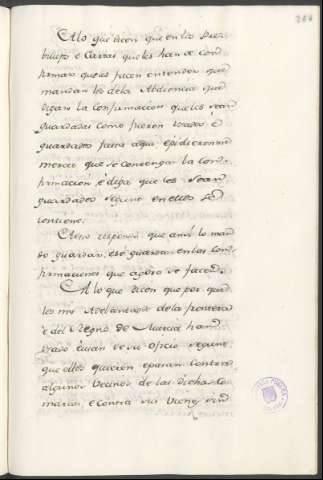 A lo que dicen que en los Previ
bilejos e Cartas que les han de con
firmar que les facen entender que
mandan los de la Abdiencia que
digan la confirmacion que les sean
guardadas como fueron usadas é
guardadas fasta aqui, é pidieronme
merced que se contenga la con
firmacion, é diga que les sean
guardados segund en ellos se
contiene.
A esto respondo que ansi lo man
do guardar, é se guarda en las con
firmaciones que agora se facen.
A lo que dicen que por quan
los mis Adelantados de la frontera
é del Regno de Murcia han
usado é usan de su oficio segund
que ellos quieren é pasan contra
algunos vecinos de las dichas Co
marcas, é contra sus bienes